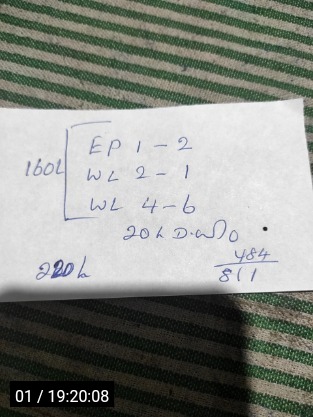 EP 1 - 2
160L WL 2 - 1
WL 4 - 6
20L D.
220L
484
811
01 / 19:20:08